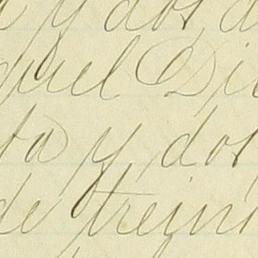 y dos
quel Di
ta y dos
de trein